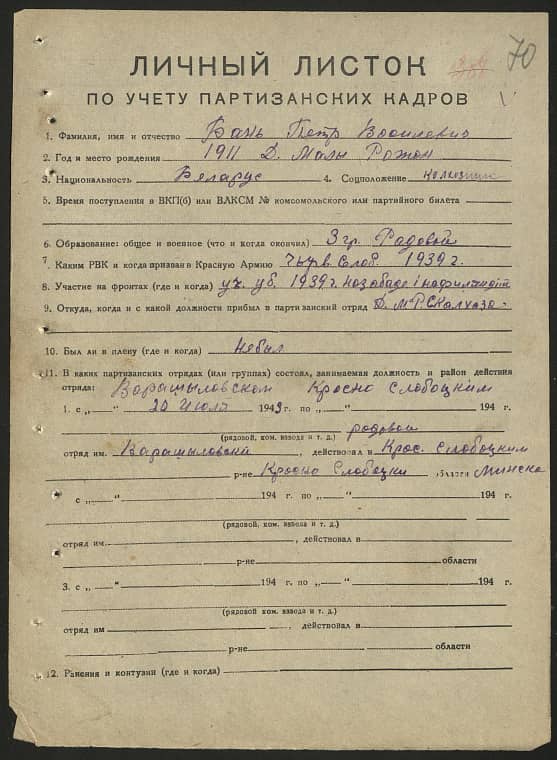 70
ЛИЧНЫЙ ЛИСТОК
ПО УЧЕТУ ПАРТИЗАНСКИХ КАДРОВ
1. Фамилия, имя и отчество Бань Петр Василевич
2. Год и место рождения 1911 Д. Малы Рожон
3. Национальность Беларус 4. Соцположение
5. Время поступления в ВКП(б) или ВЛКСМ № комсомольского или партийного билета
6. Образование: общее и военное (что и когда окончил) 3 гр. Радовой
7. Каким РВК и когда призван в Красную Армию 1939 г.
8. Участие на фронтах (где и когда) 1939 г.
9. Откуда, когда и с какой должности прибыл в партизанский отряд
10. Был ли в плену (где и когда) Небыл
11. В каких партизанских отрядах (или группах) состоял, занимаемая должность и район действия
отряда: Варашыловском Красно Слобоцким
1. с „ “ 20 Июля 1943 г. по „ “ 194 г.
радовой
(рядовой, ком. взвода и т. д.)
отряд им. Варашыловский, действовал в Крас. Слобоцким
р-не Красно Слобоцки области Минска
с „ “ 194 г. по „ “ 194 г.
(рядовой, ком. взвода и т. д.)
отряд им. , действовал в
р-не области
3. с „ “ 194 г. по „ “ 194 г.
(рядовой, ком. взвода и т. д.)
отряд им , действовал в
р-не области
12. Ранения и контузии (где и когда)